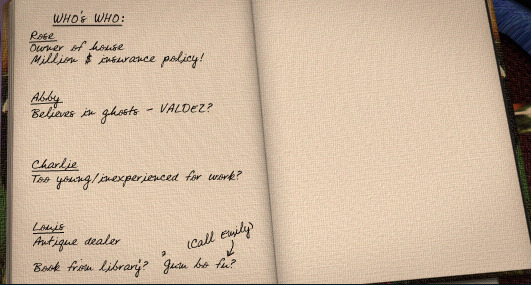 WHO'S WHO:
Rose
Owner of house
Million $ insurance policy!
Abby
Believes in ghosts - VALDEZ?
Charlie
Too young/inexperienced for work?
Louis
Antique dealer
(Call Emily)
Book from library? Gum bo fu?